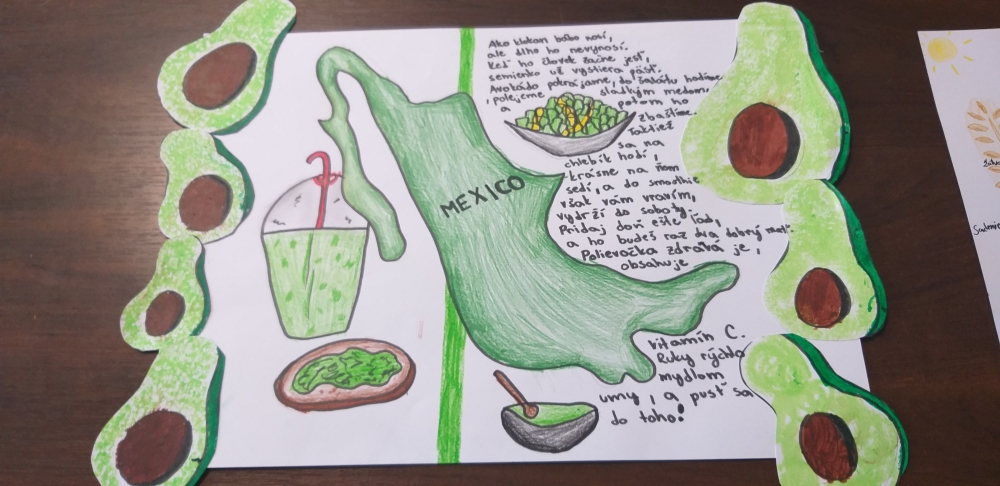 Ako klokan bábo nosí,
ale dlho ho nevynosí.
Keď ho človek začne jesť,
semienko už vystiera päsť.
Avokádo pokrájame, do šalátu hodíme
, polejeme sladkým medom,
a potom ho
zbaštíme.
Taktiež
sa na
chlebík hodí,
krásne na ňom
sedí, a do smoothie
však vám vravím,
vydrží do soboty.
Pridaj doň ešte ľad,
a ho budeš raz dva dobrý mať.
Polievočka zdravá je,
obsahuje
vitamín C.
Ruky rýchlo
mydlom
umy, a pusť sa
do toho!
MEXICO